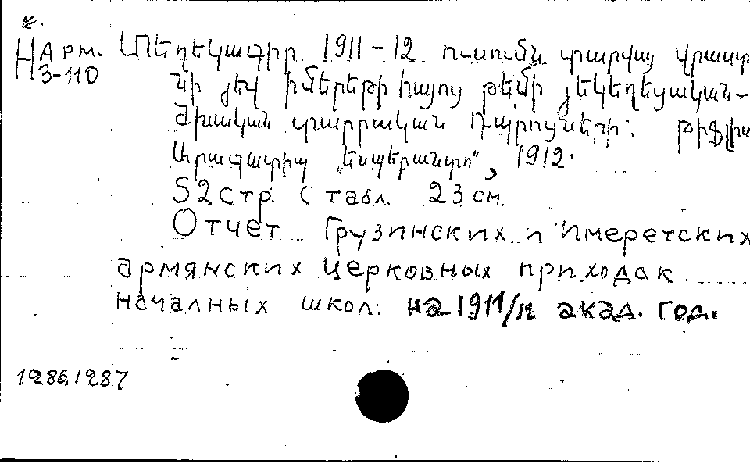 Н Арм.
3-110
Տեղեկագիր 1911-12 ուսումն. տարվայ Վրաստ
նի յեվ Իմերեթի հայոց թեմի յեկեղեցական-
ծխական տարրական դպրոցների: Թիֆլիս
Արագատիպ „Էսպերանտո“, 1912.
52 стр. с табл. 23 см
Отчет Грузинских и Имеретских
армянских церковных приходск
началных школ. на 1911/12 акад. год.
1286/1287